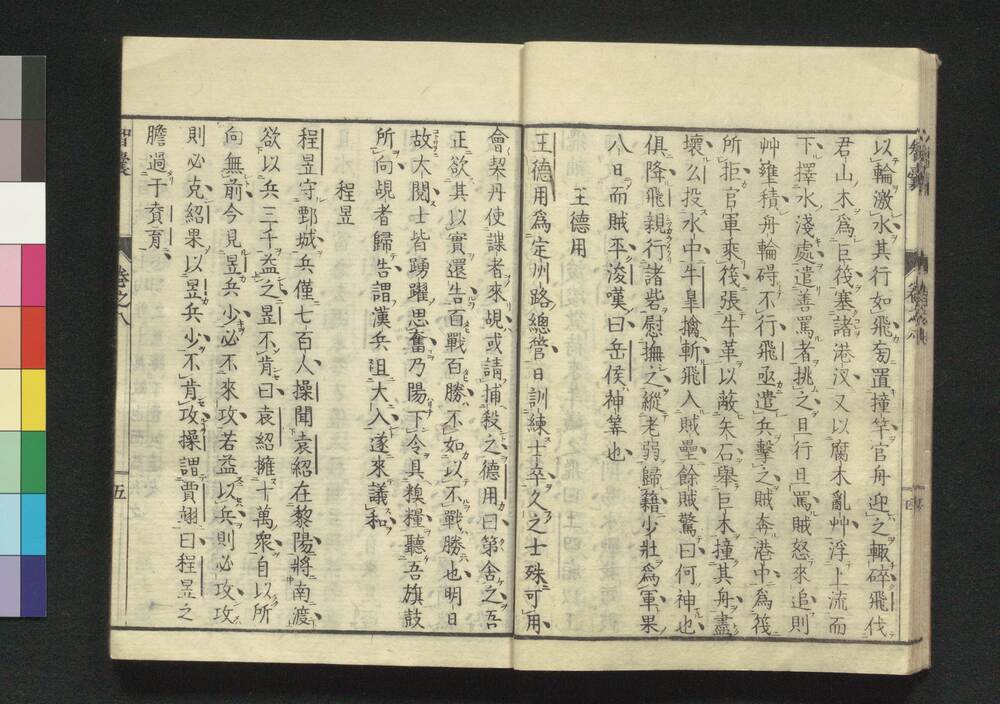 以輪激水其行如飛旁置撞竿官舟迎之輒碎飛伐
君山木為巨筏塞諸港汊又以腐木亂艸浮上流而
下擇水淺處遣善罵者挑之且行且罵賊怒來追則
艸雍積舟輪碍不行飛亟遣兵擊之賊奔港中為筏
所拒官軍乘筏張牛革以蔽矢石舉巨木撞其舟盡
壞么投水中牛皇擒斬飛入賊壘餘賊驚曰何神也
俱降飛親行諸砦慰撫之縱老弱歸籍少壯為軍果
八日而賊平浚嘆曰岳侯神筭也
王德用
王德用為定州路總管日訓練士卒久之士殊可用
會契丹使諜者來覘或請捕殺之德用曰第舍之吾
正欲其以實還告百戰百勝不如以不戰勝也明日
故大閱士皆踴躍思奮乃陽下令具糗糧聽吾旗鼓
所向覘者歸告謂漢兵且大入遂來議和
程昱
程昱守鄄城兵僅七百人操聞袁紹在黎陽將南渡
欲以兵三千益之昱不肯曰袁紹擁十萬衆自以所
向無前今見昱兵少必不來攻若益以兵則必攻攻
則必克紹果以昱兵少不肯攻操謂賈翊曰程昱之
膽過于賁育
智囊
卷之八
五